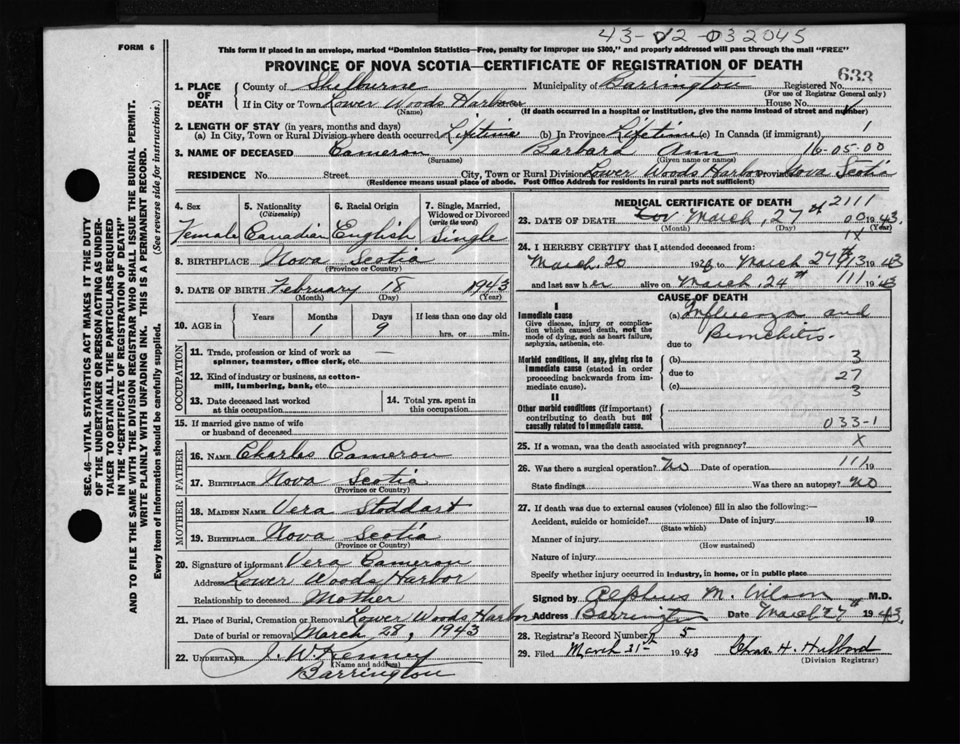 43-12-032045
FORM 6
This form if placed in an envelope, marked "Dominion Statistics—Free, penalty for improper use $300," and properly addressed will pass through the mail "FREE"
PROVINCE OF NOVA SCOTIA—CERTIFICATE OF REGISTRATION OF DEATH
633
1. PLACE OF DEATH
County of Shelburne Municipality of Barrington Registered No.
(For use of Registrar General only)
If in City or Town Lower Woods Harbour House No.
(Name) (If death occurred in a hospital or institution, give the name instead of street and number)
2. LENGTH OF STAY (in years, months and days)
(a) In City, Town or Rural Division where death occurred Lifetime (b) In Province Lifetime (c) In Canada (if immigrant) 1
3. NAME OF DECEASED Cameron Barbara Ann 16-05-00
(Surname) (Given name or names)
RESIDENCE No. Street City, Town or Rural Division Lower Woods Harbor Province Nova Scotia
(Residence means usual place of abode. Post Office Address for residents in rural parts not sufficient)
4. Sex
Female
5. Nationality
(Citizenship)
Canadian
6. Racial Origin
English
7. Single, Married, Widowed or Divorced
(write the word)
Single
8. BIRTHPLACE Nova Scotia
(Province or Country)
9. DATE OF BIRTH February 18 1943
(Month) (Day) (Year)
10. AGE in
Years Months Days If less than one day old
1 9 hrs. or min.
OCCUPATION
11. Trade, profession or kind of work as spinner, teamster, office clerk, etc. —
12. Kind of industry or business, as cotton-mill, lumbering, bank, etc.
13. Date deceased last worked at this occupation
14. Total yrs. spent in this occupation
15. If married give name of wife or husband of deceased
FATHER
16. NAME Charles Cameron
17. BIRTHPLACE Nova Scotia
(Province or Country)
MOTHER
18. MAIDEN NAME Vera Stoddart
19. BIRTHPLACE Nova Scotia
(Province or Country)
20. Signature of informant Vera Cameron
Address Lower Woods Harbor
Relationship to deceased Mother
21. Place of Burial, Cremation or Removal Lower Woods Harbor
Date of burial or removal March 28, 1943
22. UNDERTAKER J. W. Kenney
(Name and address)
Barrington
MEDICAL CERTIFICATE OF DEATH
2111
23. DATE OF DEATH March, 27th 00 1943
(Month) (Day) (Year)
1X
24. I HEREBY CERTIFY that I attended deceased from:
March 20 194 to March 27th 1943
and last saw her alive on March 24th 111 1943
CAUSE OF DEATH
I
Immediate cause
Give disease, injury or complication which caused death, not the mode of dying, such as heart failure, asphyxia, asthenia, etc.
(a) Influenza and
Bronchitis.
due to
Morbid conditions, if any, giving rise to immediate cause (stated in order proceeding backwards from immediate cause).
(b) 3
due to 27
(c) 3
II
Other morbid conditions (if important) contributing to death but not causally related to immediate cause.
033-1
25. If a woman, was the death associated with pregnancy? X
26. Was there a surgical operation? No Date of operation 111 19
State findings Was there an autopsy? NO
27. If death was due to external causes (violence) fill in also the following:—
Accident, suicide or homicide? Date of injury 19
(State which)
Manner of injury
(How sustained)
Nature of injury
Specify whether injury occurred in industry, in home, or in public place
Signed by Alpheus M. Wilson M.D.
Address Barrington Date March 27th 1943
28. Registrar's Record Number 5
29. Filed March 31st 1943 Chas. H. Hubbard
(Division Registrar)
SEC. 46—VITAL STATISTICS ACT MAKES IT THE DUTY
OF THE UNDERTAKER OR PERSON ACTING AS UNDER-
TAKER TO OBTAIN ALL THE PARTICULARS REQUIRED
IN THE "CERTIFICATE OF REGISTRATION OF DEATH"
AND TO FILE THE SAME WITH THE DIVISION REGISTRAR WHO SHALL ISSUE THE BURIAL PERMIT.
WRITE PLAINLY WITH UNFADING INK. THIS IS A PERMANENT RECORD.
Every item of information should be carefully supplied. (See reverse side for instructions.)